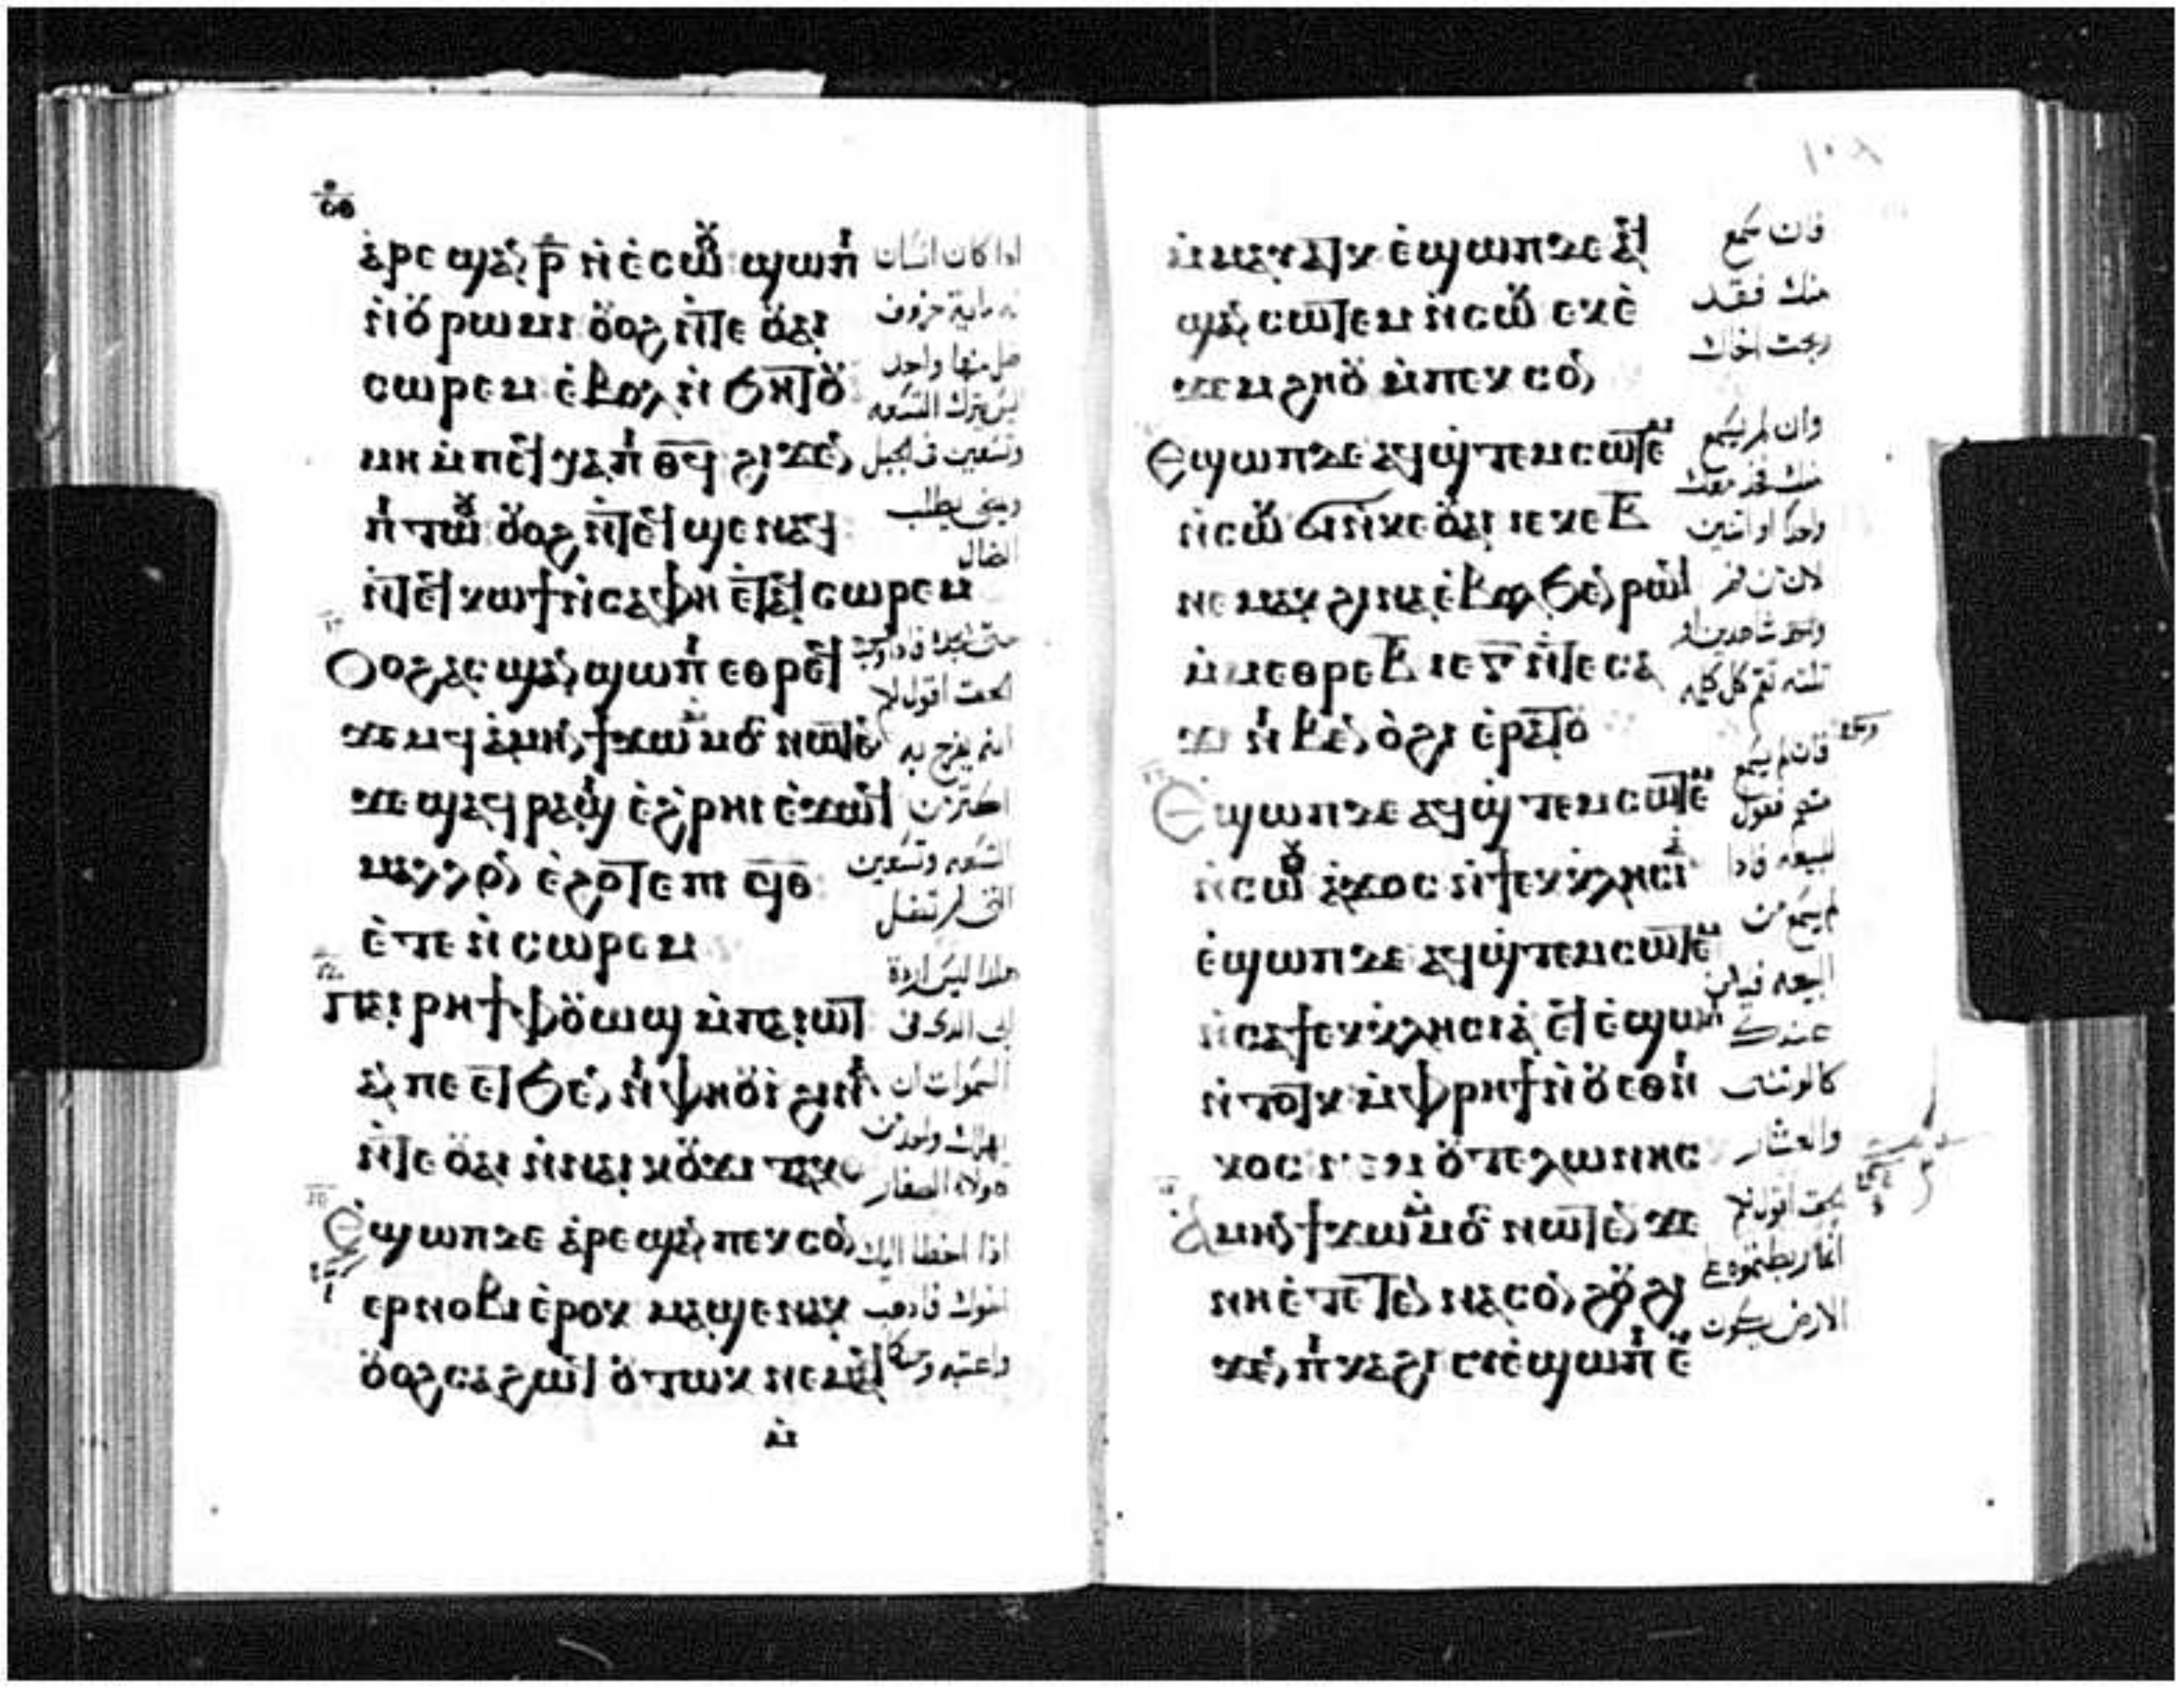 ⲁ̀ⲣⲉ ϣⲁⲛ ⲣ̅ ⲛ̀ⲉ̀ⲥⲱⲟⲩ ϣⲱⲡⲓ
ⲛ̀ⲟⲩⲣⲱⲙⲓ ⲟⲩⲟϩ ⲛ̀ⲧⲉ ⲟⲩⲁⲓ
ⲥⲱⲣⲉⲙ ⲉ̀ⲃⲟⲗ ⲛ̀ϧⲏⲧⲟⲩ
ⲙⲏ ⲙ̀ⲡⲉϥⲭⲁ ⲡⲓ ϥ̅ⲑ̅ ϩⲓϫⲉⲛ
ⲡⲓⲧⲱⲟⲩ ⲟⲩⲟϩ ⲛ̀ⲧⲉϥϣⲉⲛⲁϥ
ⲛ̀ⲧⲉϥⲕⲱϯ ⲛ̀ⲥⲁ ⲫⲏ ⲉ̀ⲧⲁϥⲥⲱⲣⲉⲙ
ⲟⲩⲟϩ ⲁⲥϣⲁⲛϣⲱⲡⲓ ⲉⲑⲣⲉϥ
ϫⲉⲙϥ ⲁ̀ⲙⲏⲛ ϯϫⲱ ⲙⲙⲟⲥ ⲛⲱⲧⲉⲛ
ϫⲉ ϣⲁϥⲣⲁϣⲓ ⲉ̀ϩ̀ⲣⲏⲓ ⲉ̀ϫⲱϥ
ⲙⲁⲗⲗⲟⲛ ⲉ̀ϩⲟⲧⲉ ⲡⲓ ϥ̅ⲑ̅
ⲉ̀ⲧⲉ ⲙ̀ⲡⲟⲩⲥⲱⲣⲉⲙ
ⲡⲁⲓⲣⲏϯ ⲫⲟⲩⲱϣ ⲙ̀ⲡⲁⲓⲱⲧ
ⲁⲛ ⲡⲉ ⲉⲧϧⲉⲛ ⲛⲓⲫⲏⲟⲩⲓ̀ ϩⲓⲛⲁ
ⲛ̀ⲧⲉ ⲟⲩⲁⲓ ⲛ̀ⲛⲁⲓ ⲕⲟⲩϫⲓ ⲧⲁⲕⲟ
ⲉϣⲱⲡ ⲇⲉ ⲁ̀ⲣⲉϣⲁⲛ ⲡⲉⲕⲥⲟⲛ
ⲉⲣⲛⲟⲃⲓ ⲉ̀ⲣⲟⲕ ⲙⲁϣⲉⲛⲁⲕ
ⲟⲩⲟϩ ⲥⲁϩⲱϥ ⲟⲩⲧⲱⲕ ⲛⲉⲙⲁϥ
ⲙ̀
اذا كان انسان
له ماية خروف
ضل منها واحد
ليس يترك التسعه
وتسعين في الجبل
ويمضى يطلب
الضال
الحق اقول لكم
انه يفرح به
اكثر من
التسعه وتسعين
التى لم تضل
هكذا ليس ارادة
ابى الدى فى
السموات ان
يهلك واحد من
هولاء الصغار
اذا اخطا اليك
اخوك فاذهب
ⲙ̀ⲙⲁⲩⲁⲧⲕ ⲉ̀ϣⲱⲡ ⲇⲉ ⲁϥ
ϣⲁⲛⲥⲱⲧⲉⲙ ⲛ̀ⲥⲱⲕ ⲉⲕⲉ̀
ϫⲉⲙϩⲏⲟⲩ ⲙ̀ⲡⲉⲕⲥⲟⲛ
ⲉϣⲱⲡ ⲇⲉ ⲁϥϣⲧⲉⲙⲥⲱⲧⲉⲙ
ⲛ̀ⲥⲱⲕ ϭⲓ ⲛ̀ⲕⲉⲟⲩⲁⲓ ⲓⲉ ⲕⲉ ⲃ̅
ⲛⲉⲙⲁⲕ ϩⲓⲛⲁ ⲉ̀ⲃⲟⲗ ϧⲉⲛ ⲣⲱϥ
ⲙ̀ⲙⲉⲑⲣⲉ ⲃ̅ ⲓⲉ ⲅ̅ ⲛ̀ⲧⲉ ⲥⲁ
ϫⲓ ⲛⲓⲃⲉⲛ ⲟ̀ϩⲓ ⲉ̀ⲣⲁⲧⲟⲩ
ⲉϣⲱⲡ ⲇⲉ ⲁϥϣⲧⲉⲙⲥⲱⲧⲉⲙ
ⲛ̀ⲥⲱⲟⲩ ⲁ̀ϫⲟⲥ ⲛ̀ϯⲉⲕⲕ̀ⲗⲏⲥⲓⲁ
ⲉ̀ϣⲱⲡ ⲇⲉ ⲁϥϣⲧⲉⲙⲥⲱⲧⲉⲙ
ⲛ̀ⲥⲁ ϯⲉⲕⲕ̀ⲗⲏⲥⲓⲁ ⲉϥⲉ̀ϣⲱⲡⲓ
ⲛ̀ⲧⲟⲧⲕ ⲙ̀ⲫⲣⲏϯ ⲛ̀ⲟⲩⲉⲑⲛⲓ
ⲕⲟⲥ ⲛⲉⲙ ⲟⲩⲧⲉⲗⲱⲛⲏⲥ
ⲁⲙⲏⲛ ϯϫⲱ ⲙⲙⲟⲥ ⲛⲱⲧⲉⲛ ϫⲉ
ⲛⲏ ⲉ̀ⲧⲉⲧⲉⲛⲛⲁⲥⲟⲛϩⲟⲩ ϩⲓ
ϫⲉⲛ ⲡⲓⲕⲁϩⲓ ⲉⲩⲉ̀ϣⲱⲡⲓ ⲉ
فان سمع
منك فقد
ربحت اخاك
وان لم يسمع
منك فخذ معك
واحدا او اثنين
ثلثه تقم كل كلمه
فان لم يسمع
منهم فقول
للبيعه فاذا
لم يسمع من
البيعه فيكن
عندك
كالوثنى
والعشار
الحق اقول لكم
الارض يكون